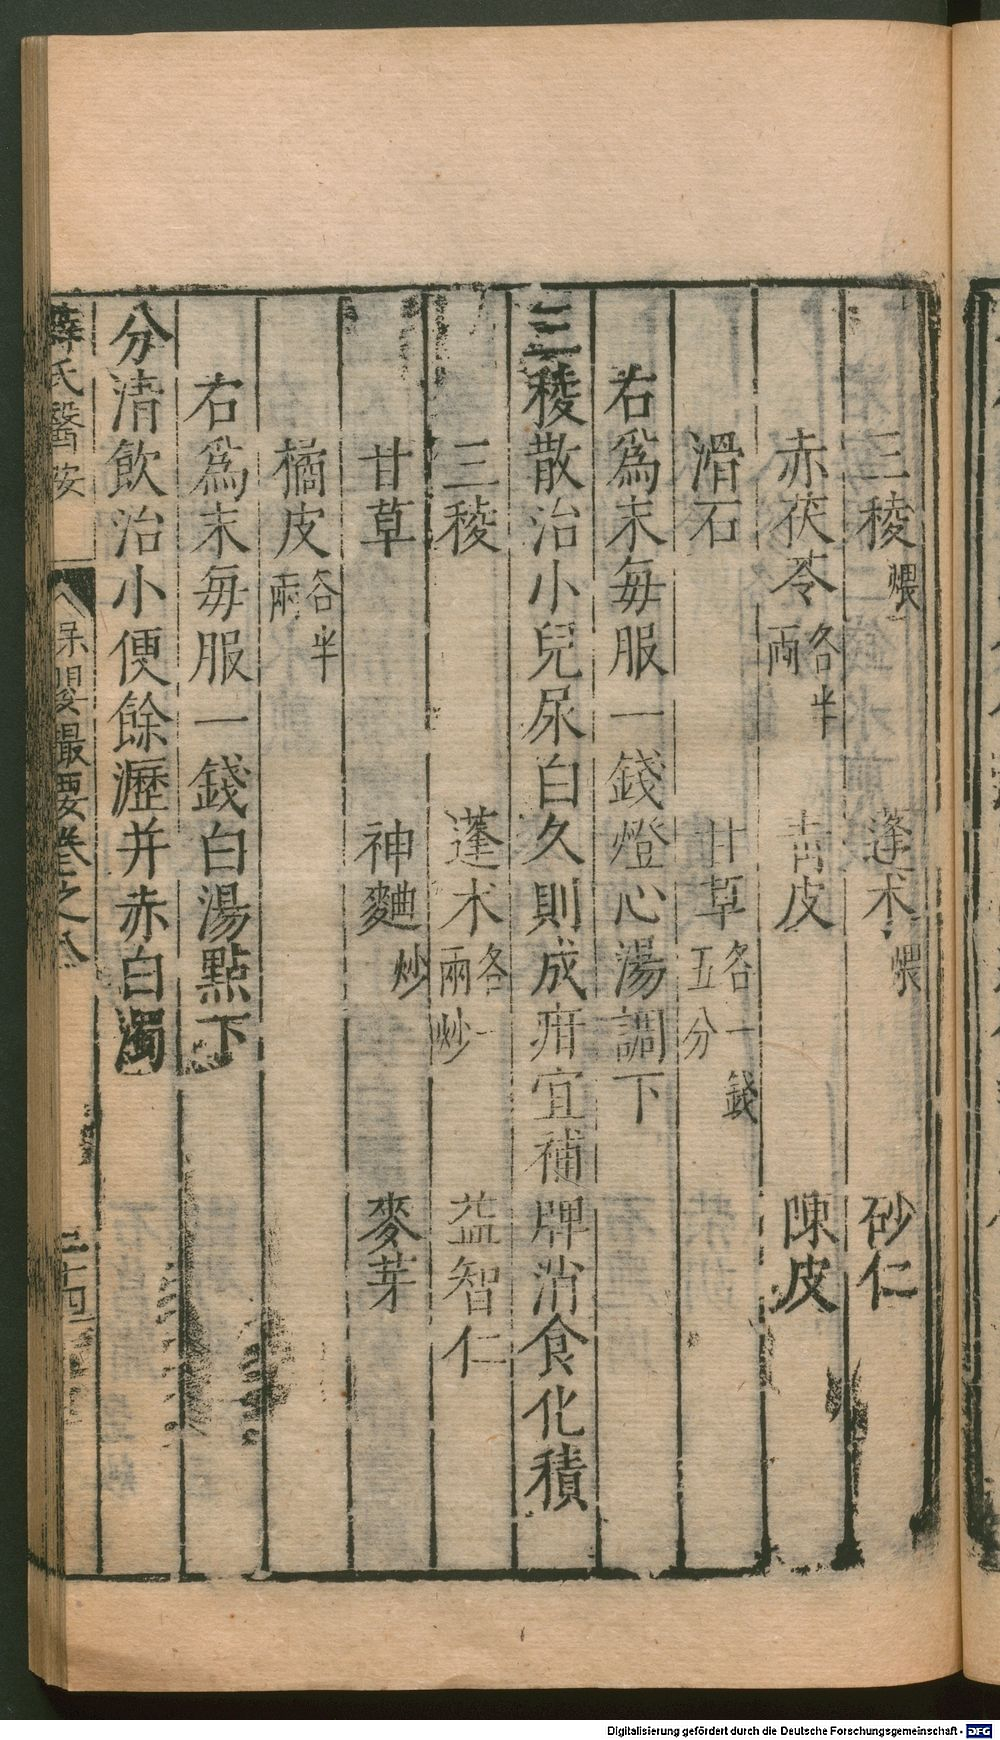 三稜煨 蓬术煨 砂仁
赤茯苓各半兩 青皮 陳皮
滑石 甘草各一錢五分
右爲末每服一錢燈心湯調下
三稜散治小兒尿白久則成疳宜補脾消食化積
三稜 蓬术各一兩炒 益智仁
甘草 神麯炒 麥芽
橘皮各半兩
右爲末每服一錢白湯點下
分清飲治小便餘瀝并赤白濁
薛氏醫按 保嬰撮要卷之八 三十四
Digitalisierung gefördert durch die Deutsche Forschungsgemeinschaft - DFG